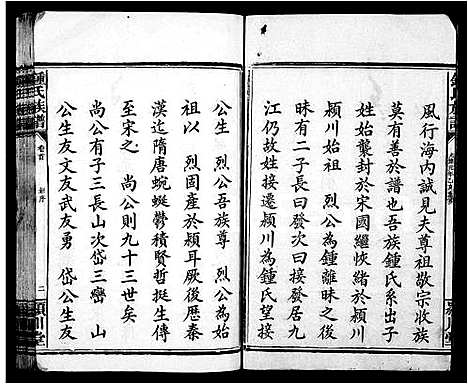 風行海内誠見夫尊祖敬宗收族
莫有善於譜也吾族鍾氏系出子
姓始襲封於宋國繼恢緒於
潁川始祖 烈公為鍾離昧之後
昧有二子長曰發次曰接發居九
江仍故姓接遷潁川為鍾氏望接
祖以 烈公吾族尊 烈公為始
祖以 烈固產於潁耳厥後歷秦
漢迄隋唐蜿蜒鬱積賢哲挺生傳
至宋之 尚公則九十三世矣
尚公有子三長山次岱三巒 山
公生友文友武友勇 岱公生友
鍾氏族譜
卷首
二
潁川堂